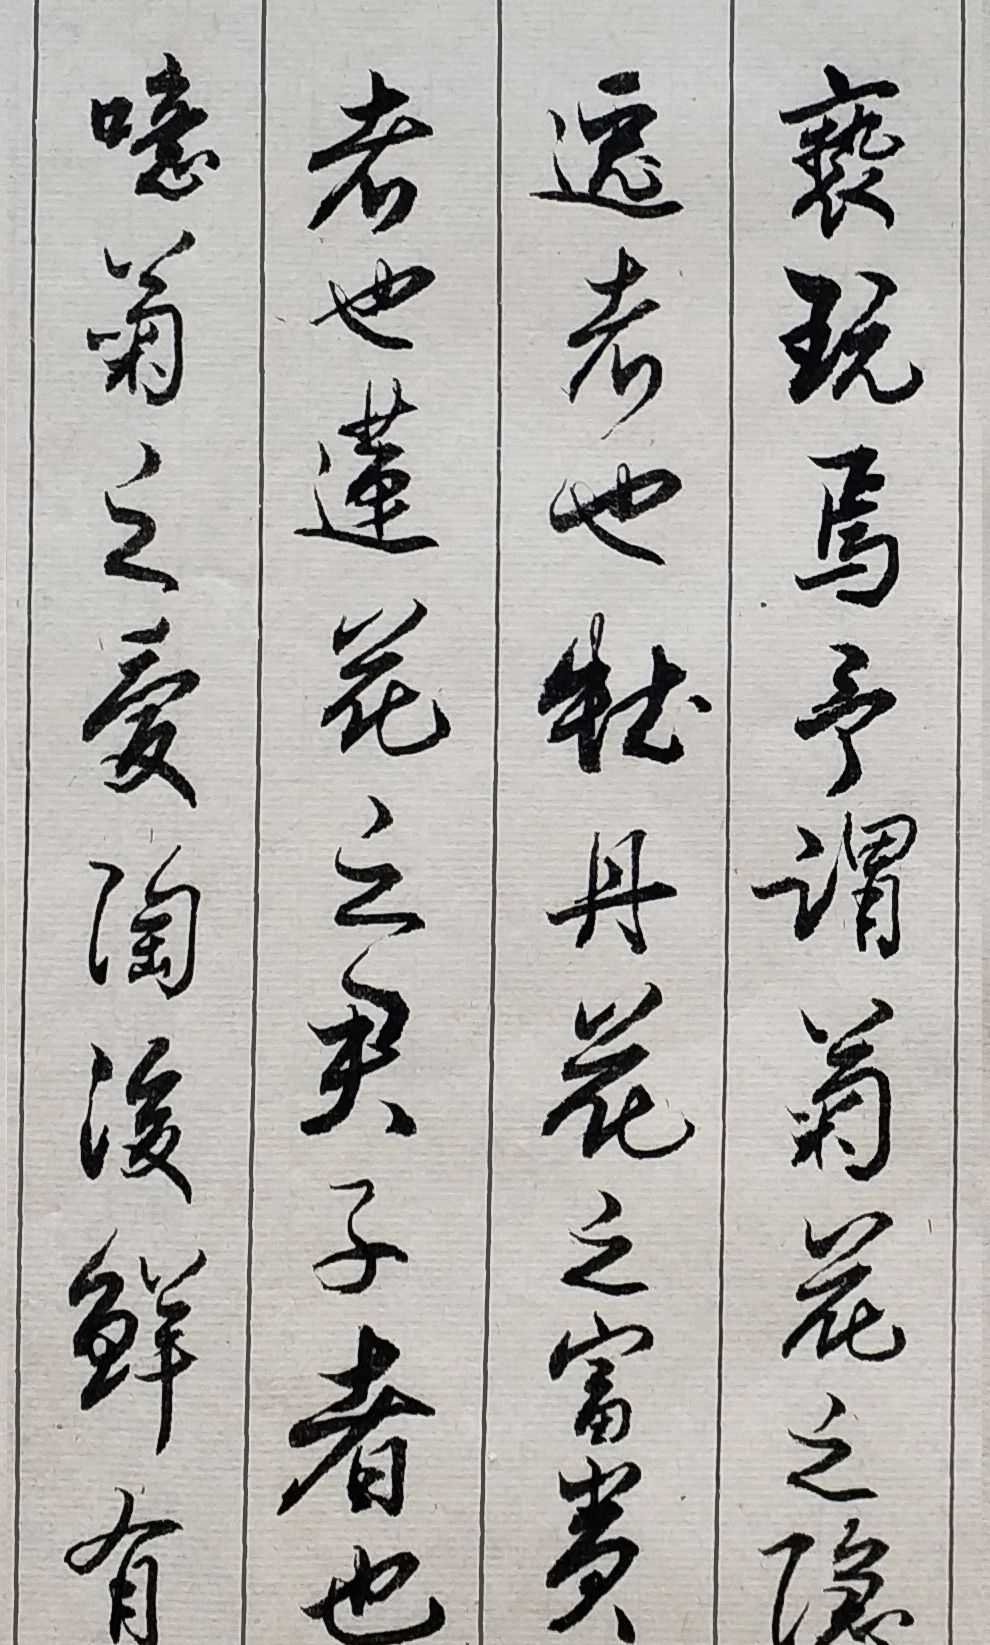 褻玩焉予謂菊花之隱
逸者也牡丹花之富貴
者也蓮花之君子者也
噫菊之愛陶後鮮有